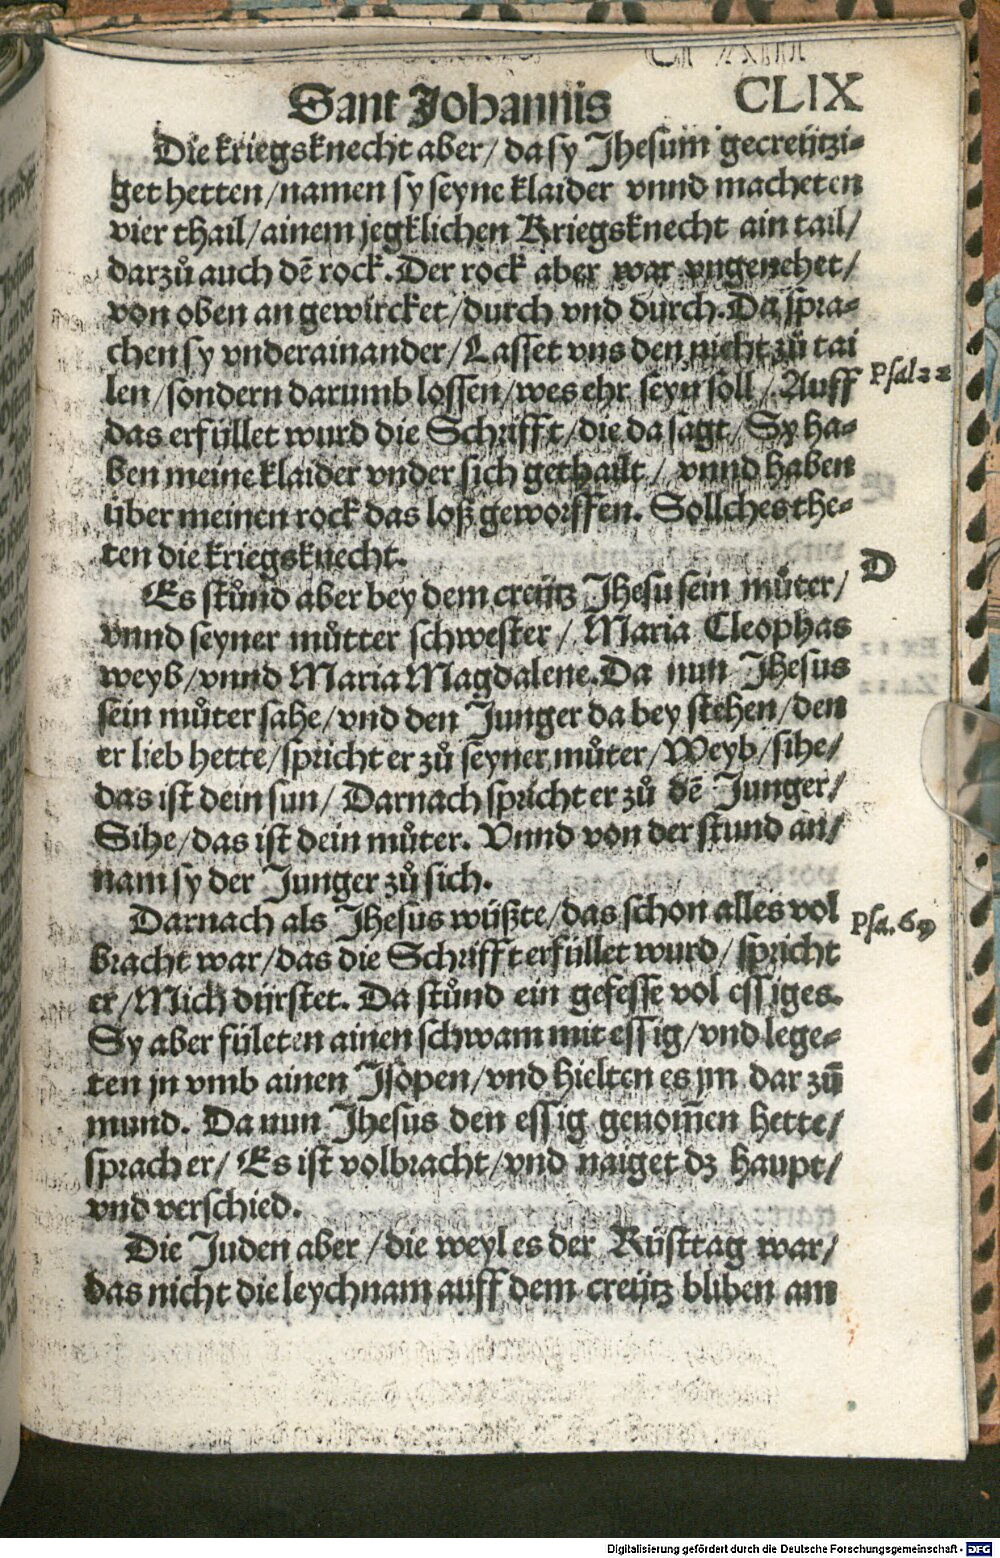 Sant Johannis CLIX
Die kriegsknecht aber/ da sy Jhesum gecreützi-
get hetten/namen sy seyne klaider vnnd macheten
vier thail/ainem jegklichen Kriegsknecht ain tail/
darzů auch dē rock. Der rock aber war vngenehet/
von oben an gewürcket/durch vnd durch. Da spra-
chen sy vnderainander/Lasset vns den nicht zů tai
len/sondern darumb lossen/wes ehr seyn soll/ Auff
Psal 22
das erfüllet wurd die Schrifft/die da sagt/ Sy ha-
ben meine klaider vnder sich gethailt/ vnnd haben
über meinen rock das loß geworffen. Sollches the-
ten die kriegsknecht.
D
Es stůnd aber bey dem creütz Jhesu sein můter/
vnnd seyner můtter schwester/ Maria Cleophas
weyb/vnnd Maria Magdalene. Da nun Jhesus
sein můter sahe/vnd den Junger da bey stehen/den
er lieb hette/spricht er zů seyner můter/Weyb/sihe/
das ist dein sun/ Darnach spricht er zů dē Junger/
Sihe/das ist dein můter. Vnnd von der stund an/
nam sy der Junger zů sich.
Darnach als Jhesus wüßte/das schon alles vol
Psa. 69
bracht war/das die Schrifft erfüllet wurd/ spricht
er/Mich dürstet. Da stůnd ein gefesse vol essiges.
Sy aber fületen ainen schwam mit essig/vnd lege-
ten jn vmb ainen Jsopen/vnd hielten es jm dar zū
mund. Da nun Jhesus den essig genom̄en hette/
sprach er/ Es ist volbracht/vnd naiget dz haupt/
vnd verschied.
Die Juden aber/die weyl es der Rüsttag war/
das nicht die leychnam auff dem creütz bliben am
Digitalisierung gefördert durch die Deutsche Forschungsgemeinschaft - DFG